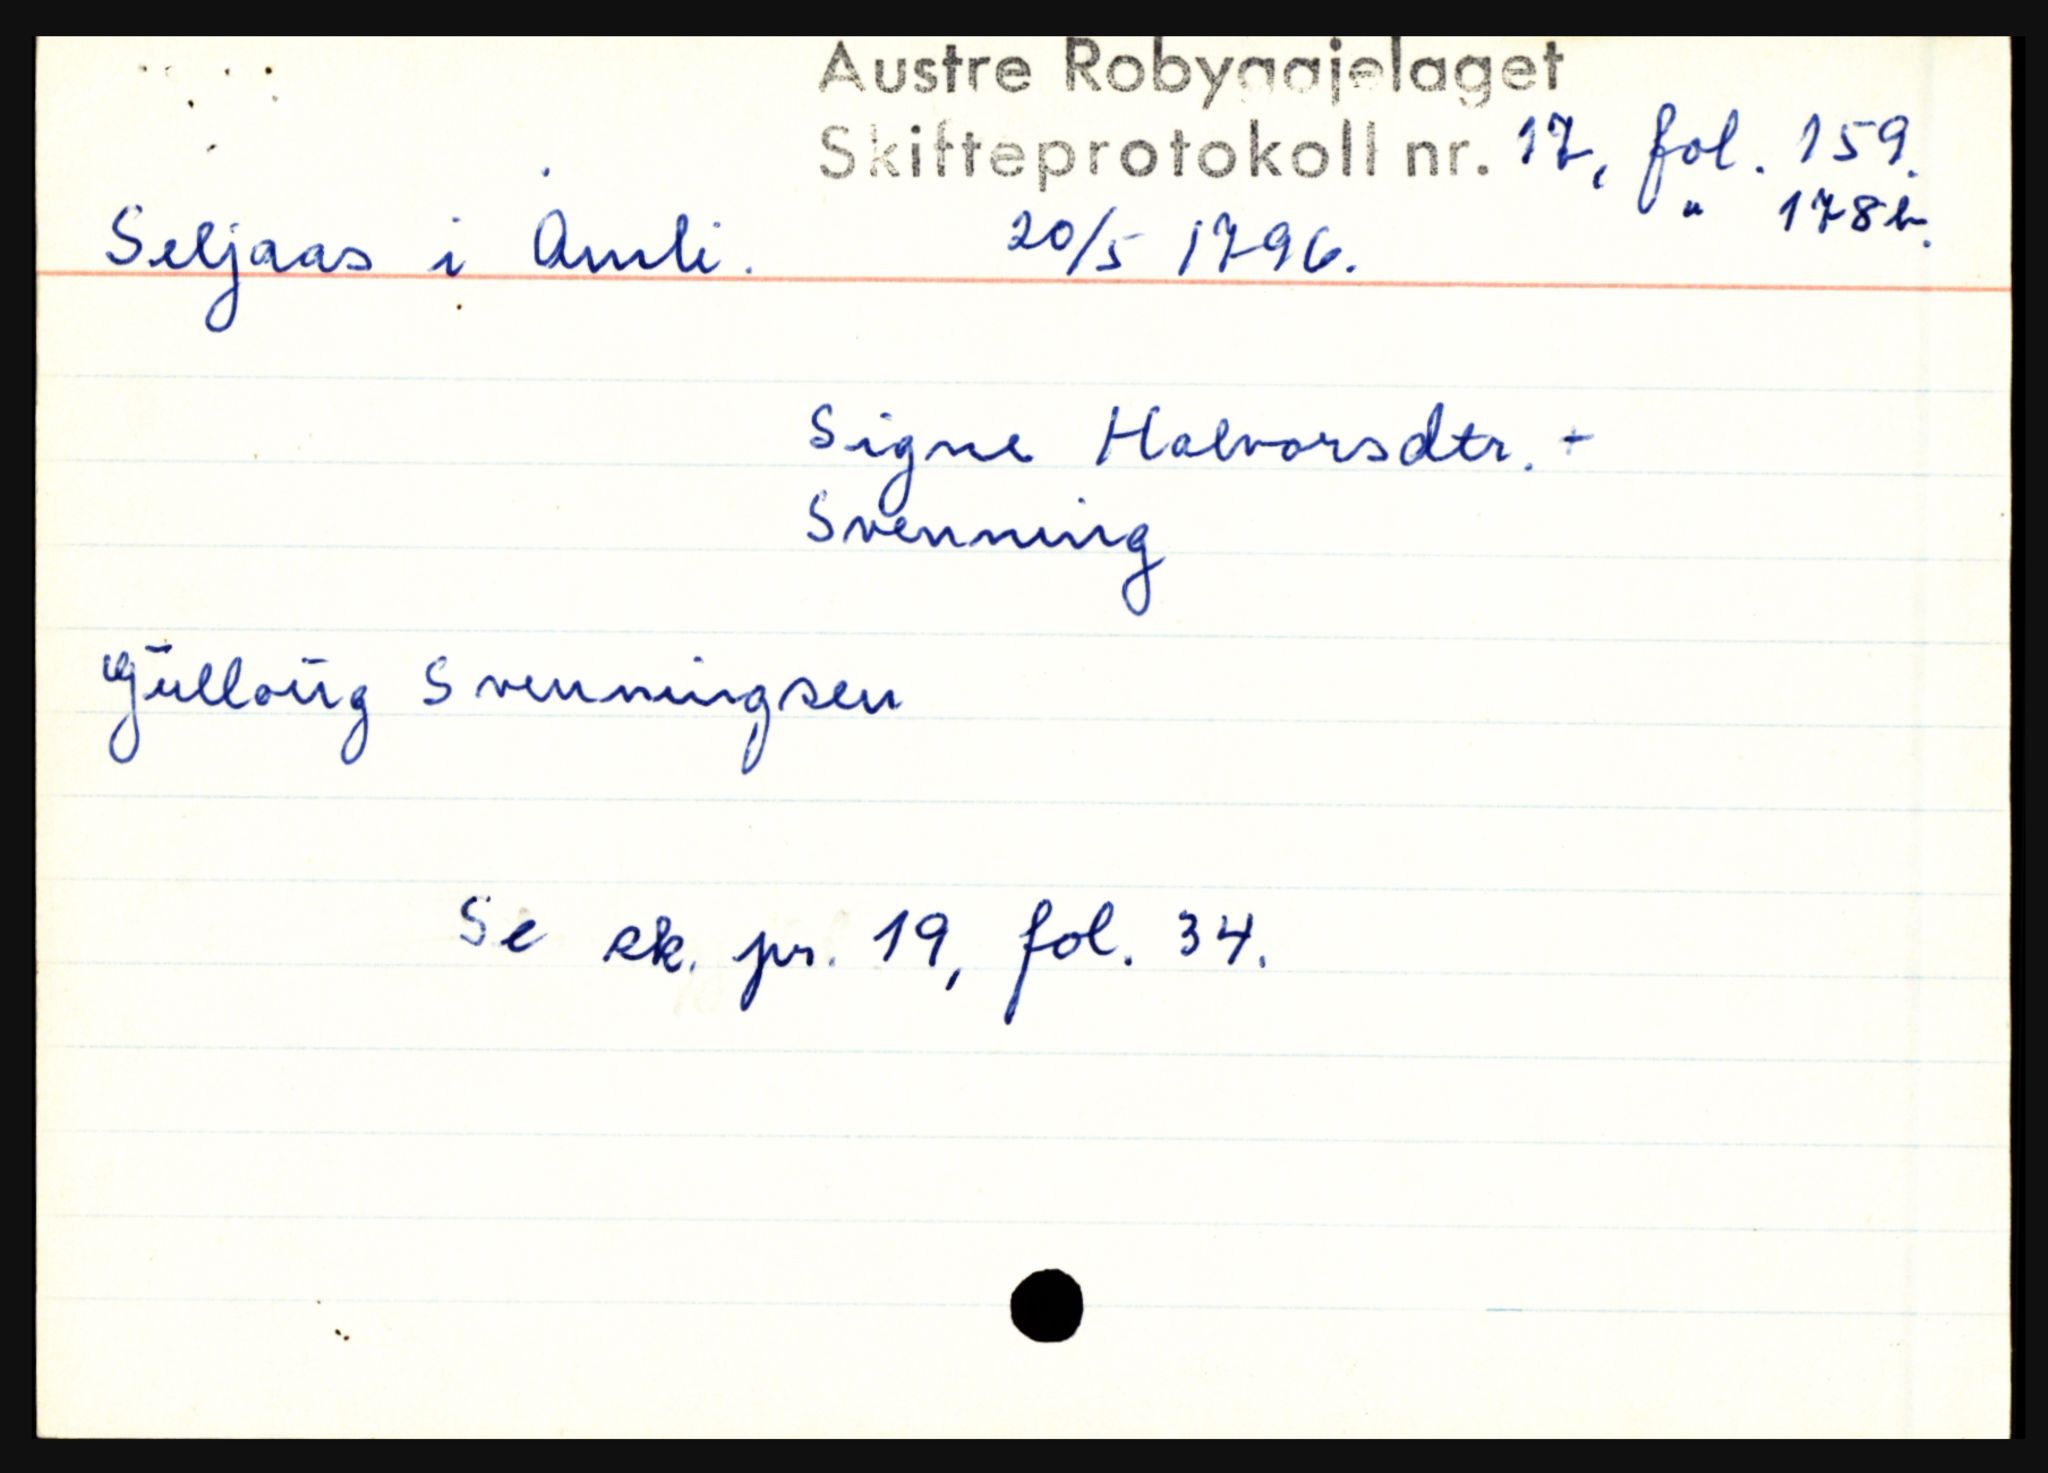 Austre Robyggjelaget
Skifteprotokoll nr. 17, fol. 159.
" 178b.
Seljaas i Åmli. 20/5 1796.
Signe Halvorsdtr. +
Svenning
Gŭlloŭg Svenningsen
Se sk. pr. 19, fol. 34.